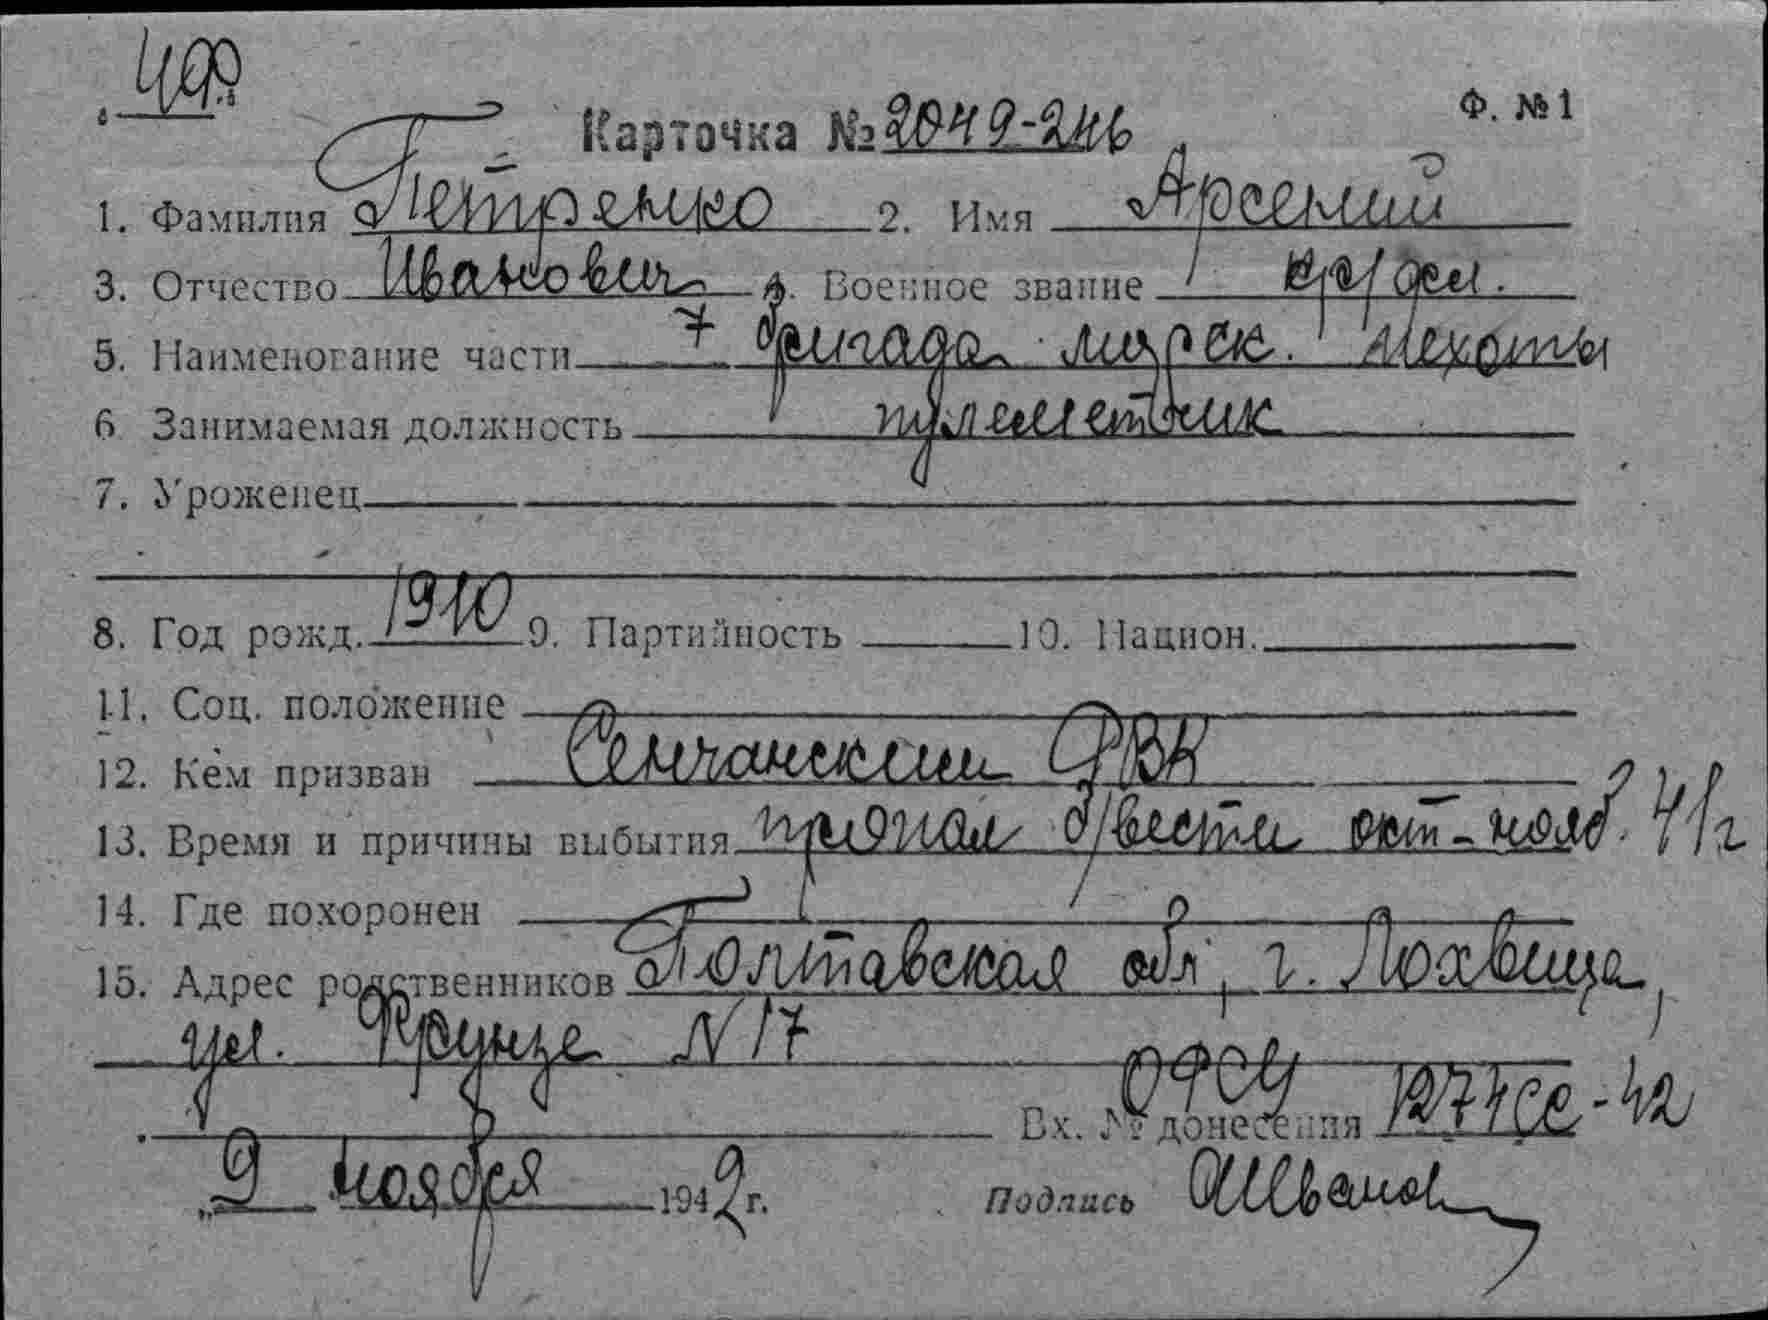 ЧФ
Ф. №1
Карточка № 2049-246
1. Фамилия Петренко 2. Имя Арсений
3. Отчество Иванович 4. Военное звание кр/фл.
5. Наименование части 7 бригада морск. пехоты
6 Занимаемая должность пулеметчик
7. Уроженец
8. Год рожд. 1910 9. Партийность 10. Национ.
11. Соц. положение
12. Кем призван Сенчанским РВК
13. Время и причины выбытия пропал б/вести окт-нояб. 41г
14. Где похоронен
15. Адрес родственников Полтавская обл, г. Лохвица,
ул. Фрунзе N 17
Вх. № донесения
„9 ноября 1942 г. Подпись